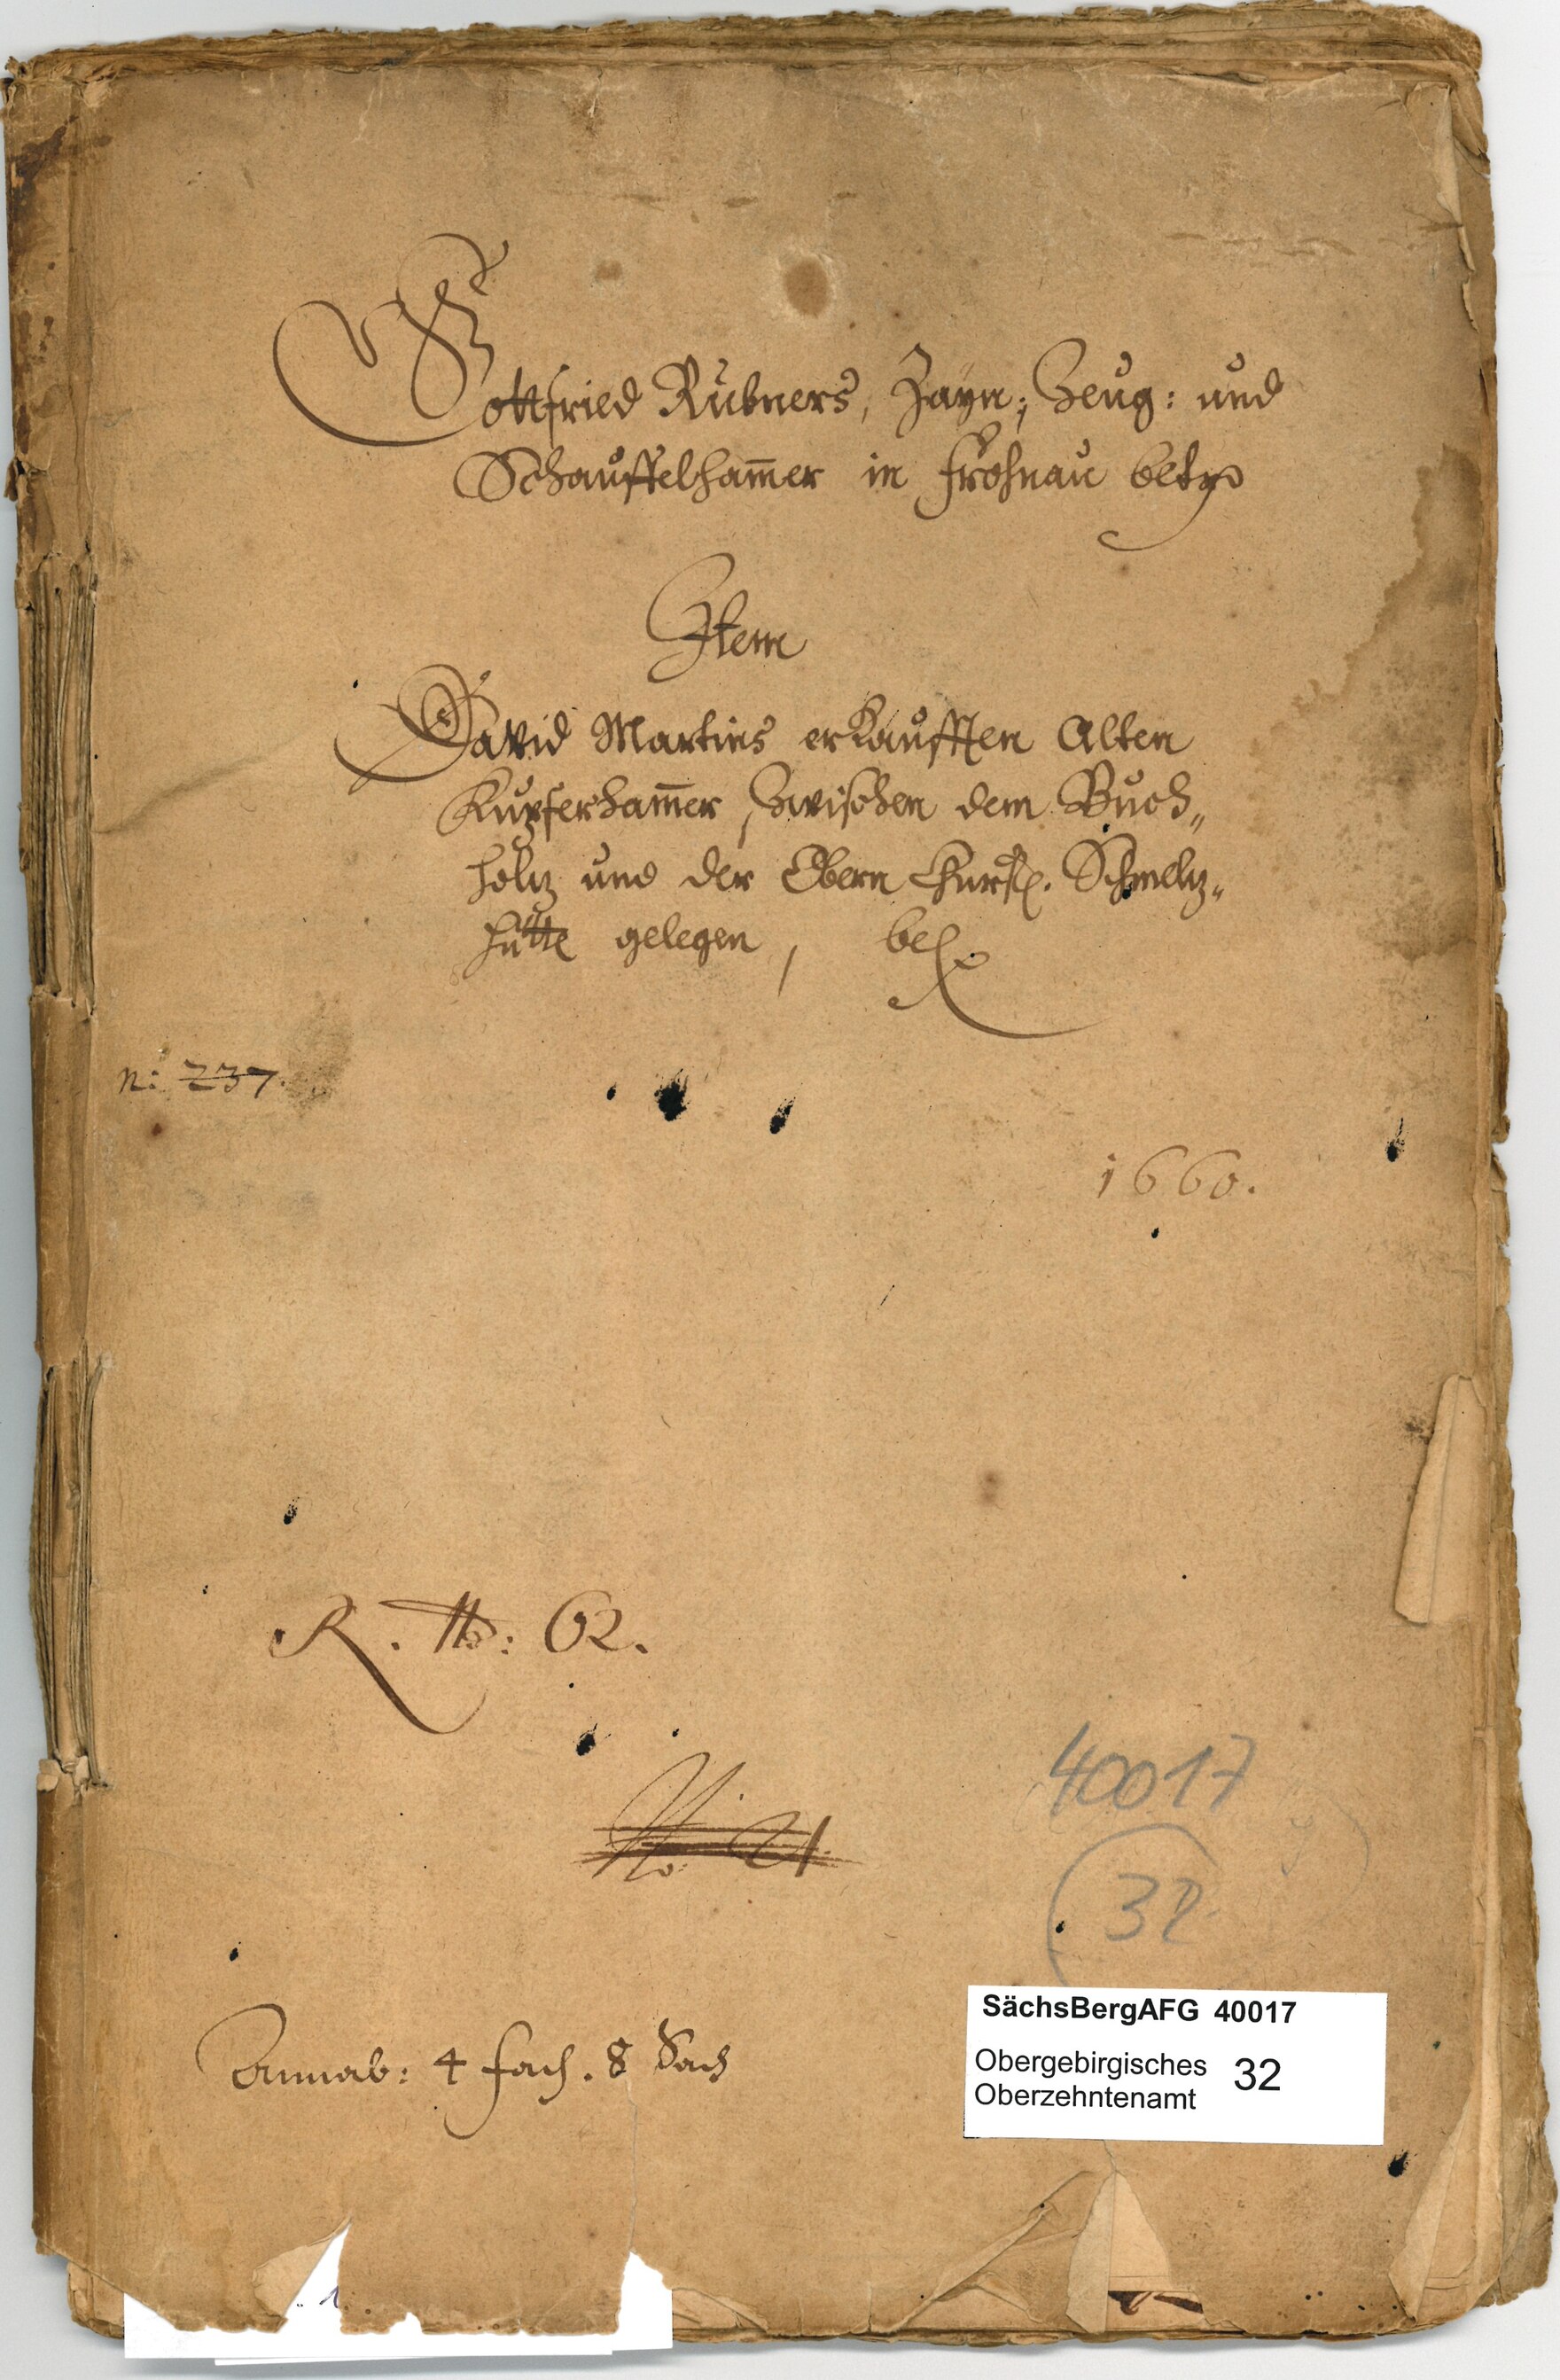 Gottfried Rübners, Zayn; Zeug: und
Schauffelham̄er in Frohnau betr
Item
David Martins erkaufften Alten
Kupferham̄er, Zwischen dem Buch„
holtz und der Obern Churfl. Schmeltz„
hütte gelegen, bel
n: 237.
1660.
R. No: 62.
No. 21.
40017
32
Annab: 4 fach. 8 Sach
SächsBergAFG 40017
Obergebirgisches 32
Oberzehntenamt